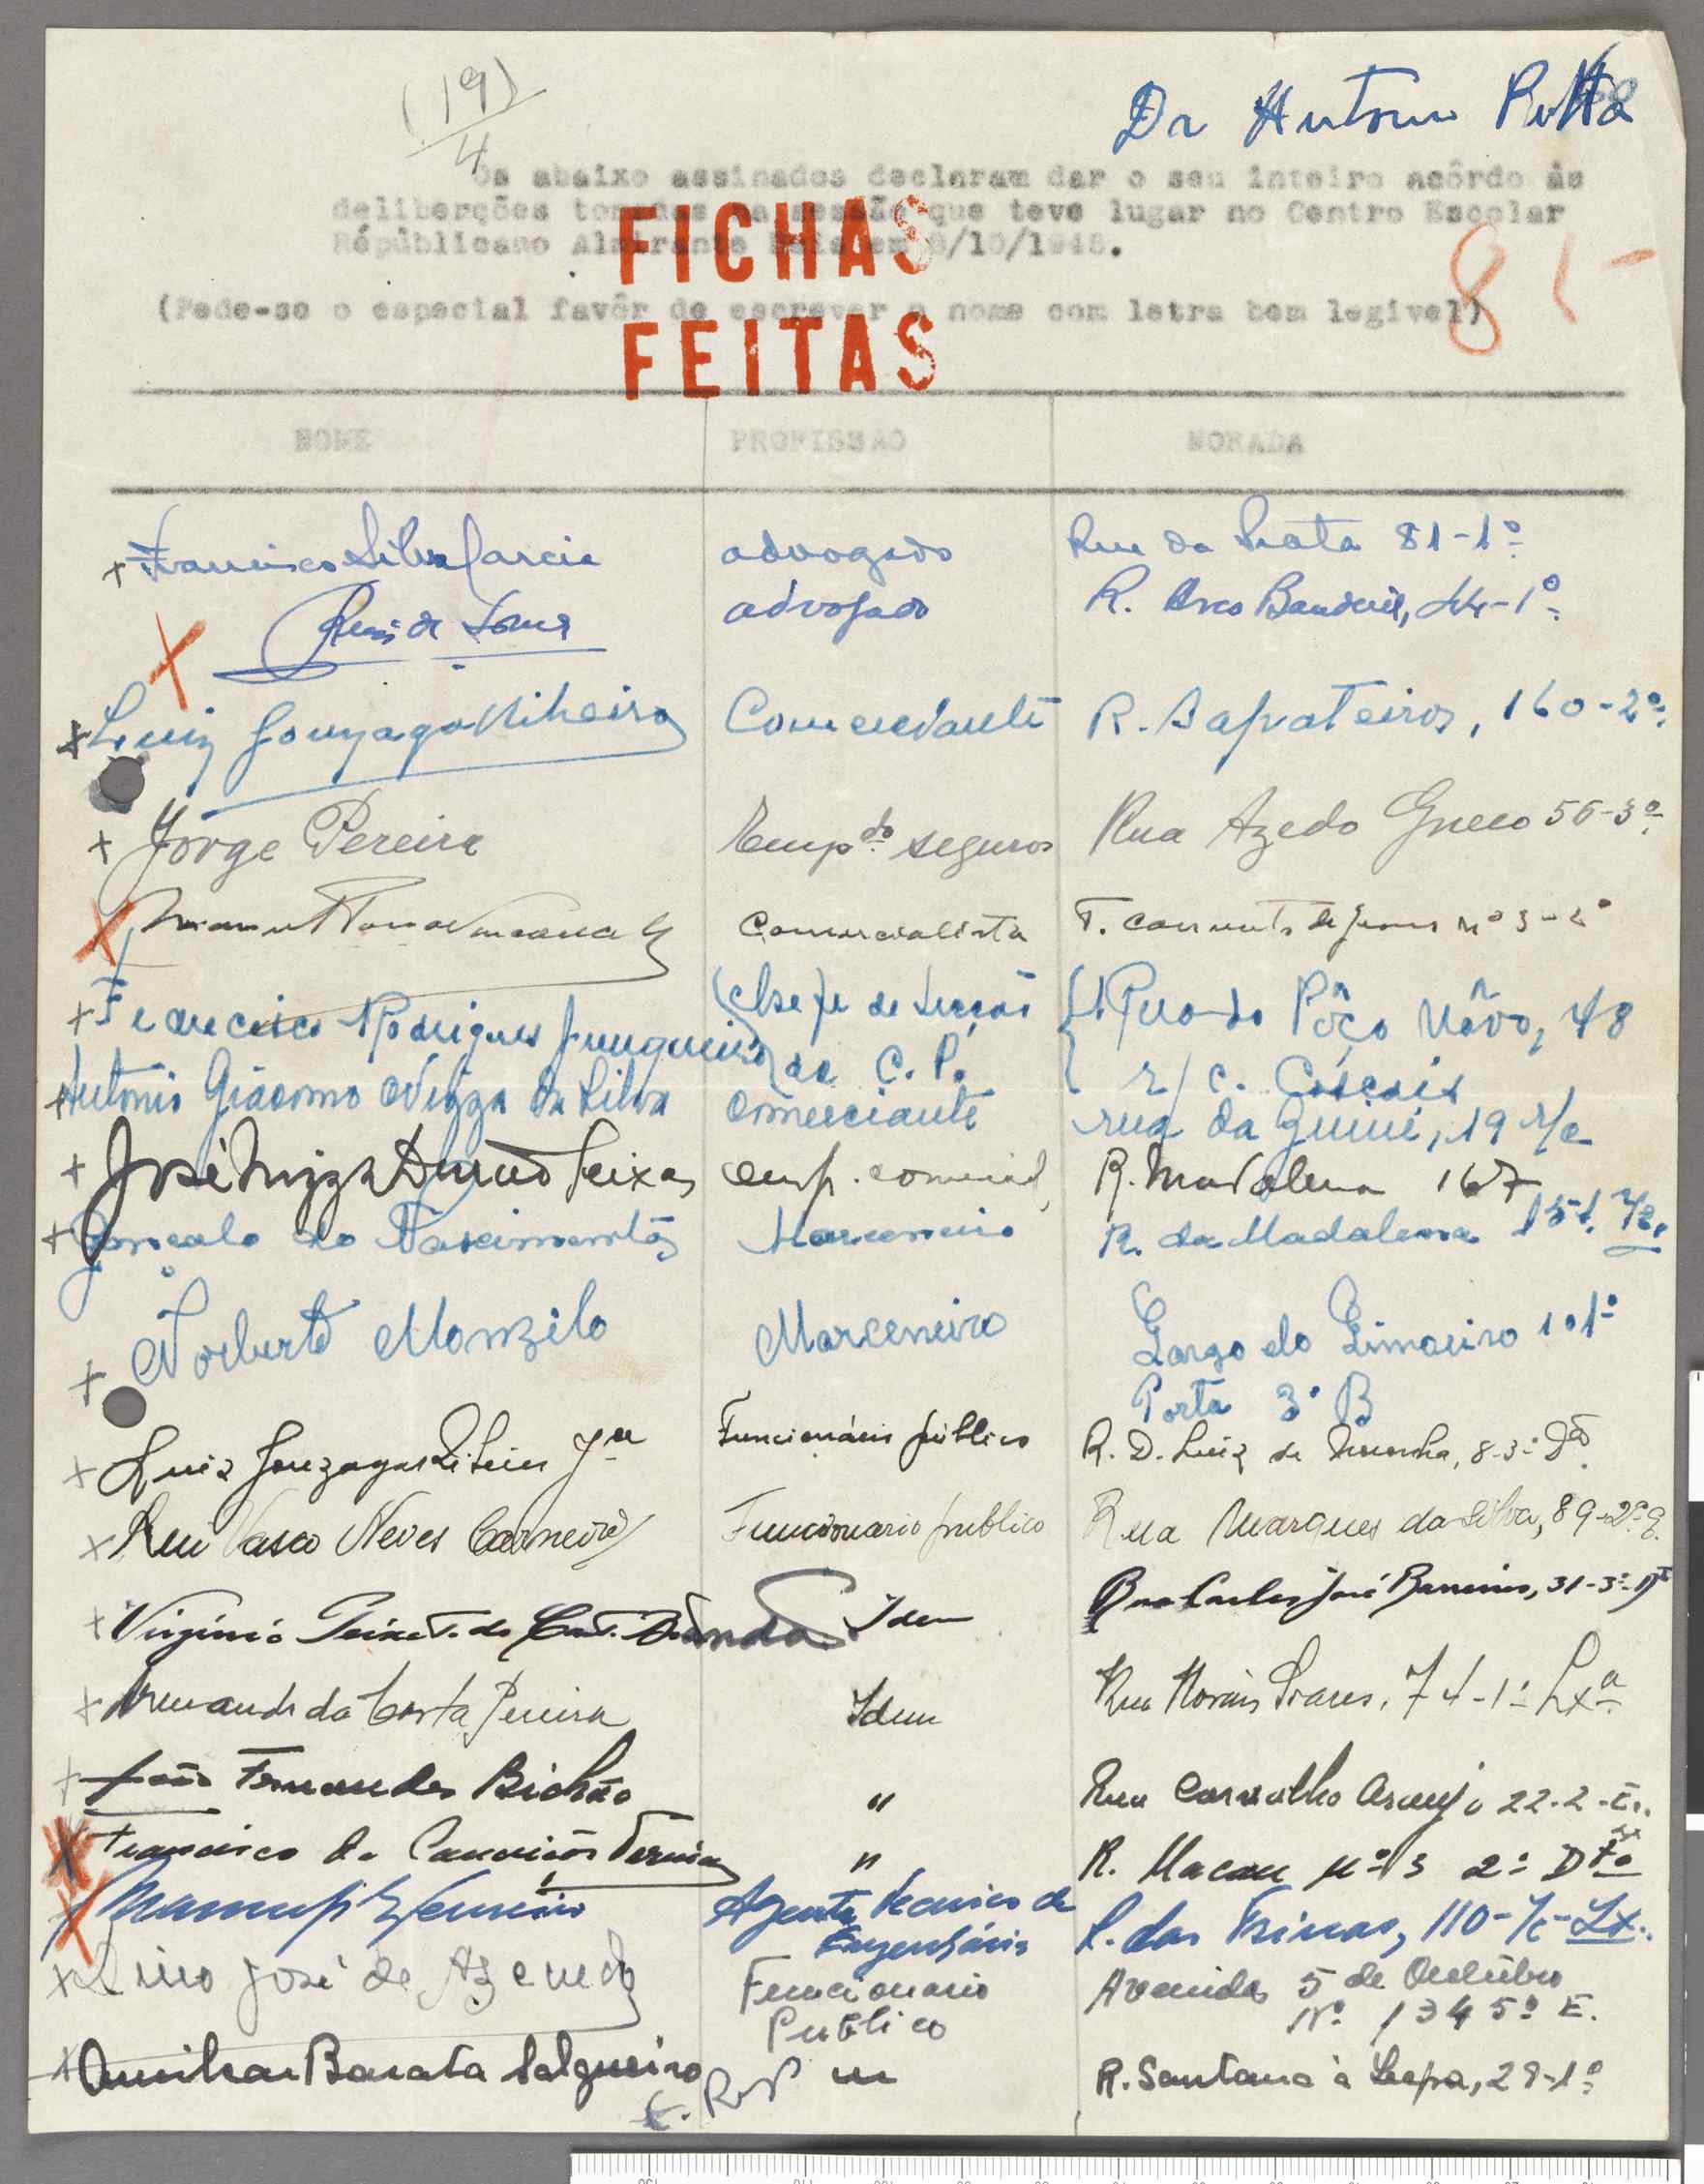 (19)
4
Dr Antonio
Os abaixo assinados declaram dar o seu inteiro acôrdo às
deliberções tomadas na sessão que teve lugar no Centro Escolar
Républicano Almirante Reis em 8/10/1945.
FICHAS
(Pede-se o especial favôr de escrever o nome com letra bem legivel)
8
FEITAS
NOME PROFISSAO MORADA
Francisco Silva Garcia advogado Rua da Prata 81-1º
advogado R. Arco Bandeira, 1º
Luiz Gonzaga Ribeiro Comerciante R. Sapateiros, 160-2º
Jorge Pereira Emp.do seguros Rua Azedo Gneco 56-3º
Comercialista T. Convento de Jesus nº 3-2º
Francisco Rodrigues Junqueiro chefe de secção Rua do Pôço Nôvo, 48
da C. P. r/c. Cascais
Antonio Giacomo Nizza da Silva comerciante rua da Guiné, 19 r/c
José Nizza Seixas emp. comercial R. Madalena 167
Gonçalo do Nascimento Marceneiro R. da Madalena 151. r/c.
Norberto Monzilo Marceneiro Largo do Limoeiro 1º
Porta 3º B
Luiz Gonzaga Ribeiro Jor Funcionário público R. D. Luiz de Noronha, 8-3º Dto
Rui Vasco Neves Carneiro Funcionario publico Rua Marques da Silva, 89-2º E.
Virginio Idem Rua Carlos José Barreiros, 31-3º-Dt
Armando da Costa Pereira Idem Rua Morais Soares, 74-1º Lxa
João Fernandes Bichão " Rua Carvalho Araujo 22-2-E.
Francisco da Conceição " R. Macau nº 3 2º Dto
Manuel Ferreira Agente técnico de R. das Trinas, 110-r/c-Lx.
Engenharia
Lino José de Azevedo Funcionario Avenida 5 de Outubro
Publico Nº 134 5º E.
Amilcar Barata Salgueiro R. Santana à Lapa, 28-1º